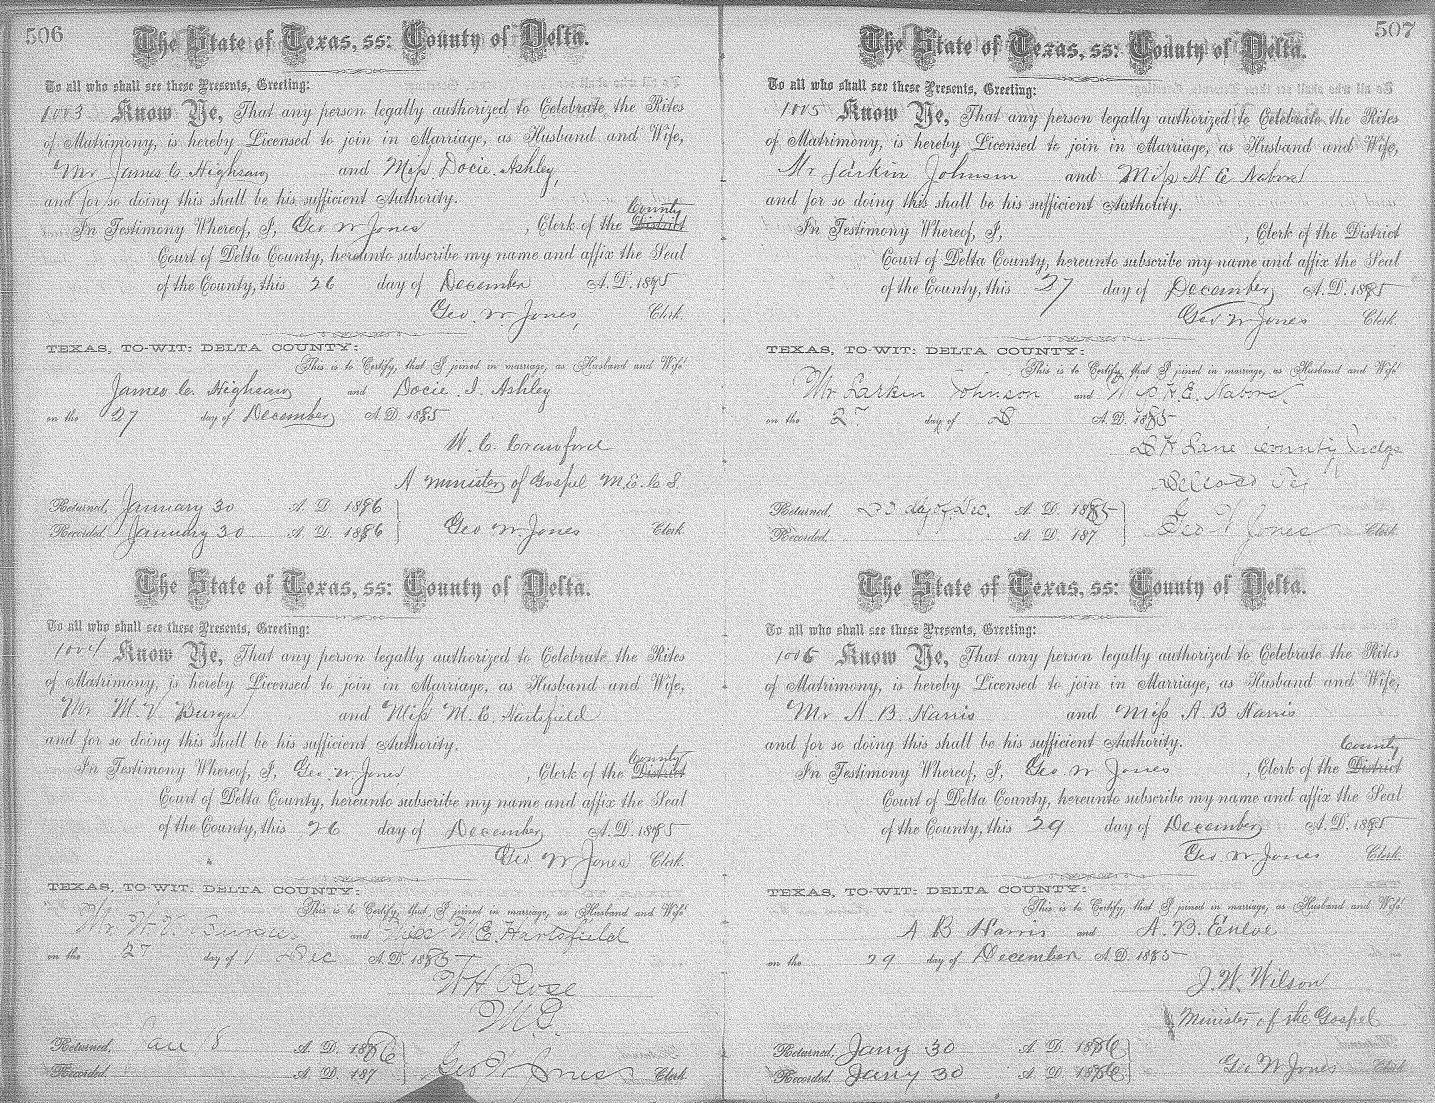 506
The State of Texas, ss: County of Delta.
To all who shall see these Presents, Greeting:
1003 Know Ye, That any person legally authorized to Celebrate the Rites
of Matrimony, is hereby Licensed to join in Marriage, as Husband and Wife,
Mr James C Highsaw and Miss Docie Ashley,
and for so doing this shall be his sufficient Authority.
County
In Testimony Whereof, I, Geo W Jones, Clerk of the District
Court of Delta County, hereunto subscribe my name and affix the Seal
of the County, this 26 day of December A. D. 1885
Geo. W. Jones, Clerk.
TEXAS, TO-WIT: DELTA COUNTY:
This is to Certify, that I joined in marriage, as Husband and Wife
James C. Highsaw and Docie I. Ashley
on the 27 day of December A. D. 1885
W. C. Crawford
A minister of Gospel M.E.C.S
Returned, January 30 A. D. 1886
Recorded January 30 A. D. 1886 Geo W Jones Clerk
The State of Texas, ss: County of Delta.
To all who shall see these Presents, Greeting:
1004 Know Ye, That any person legally authorized to Celebrate the Rites
of Matrimony, is hereby Licensed to join in Marriage, as Husband and Wife,
Mr M. V Burges and Miss M. E. Hartsfield
and for so doing this shall be his sufficient Authority.
County
In Testimony Whereof, I, Geo. W. Jones, Clerk of the District
Court of Delta County, hereunto subscribe my name and affix the Seal
of the County, this 26 day of December A. D. 1885
Geo W Jones Clerk.
TEXAS, TO-WIT: DELTA COUNTY:
This is to Certify, that I joined in marriage, as Husband and Wife
Mr. Burges and Miss M.E. Hartsfield
on the 27 day of Dec A. D. 1885
W H Rose
M.G.
Returned, Jan 8 A. D. 1886
Recorded, A. D. 187 Geo W Jones Clerk
507
The State of Texas, ss: County of Delta.
To all who shall see these Presents, Greeting:
1005 Know Ye, That any person legally authorized to Celebrate the Rites
of Matrimony, is hereby Licensed to join in Marriage, as Husband and Wife,
Mr Larkin Johnson and Miss H E Nabors
and for so doing this shall be his sufficient Authority.
In Testimony Whereof, I, , Clerk of the District
Court of Delta County, hereunto subscribe my name and affix the Seal
of the County, this 27 day of December A. D. 1885
Geo W Jones Clerk.
TEXAS, TO-WIT: DELTA COUNTY:
This is to Certify, that I joined in marriage, as Husband and Wife
Mr Larkin Johnson and Miss H. E. Nabors.
on the 27 day of D A. D. 1885
Lane County Judge
Returned, day of Dec. A. D. 1885
Recorded, A. D. 187 Geo W Jones Clerk
The State of Texas, ss: County of Delta.
To all who shall see these Presents, Greeting:
1006 Know Ye, That any person legally authorized to Celebrate the Rites
of Matrimony, is hereby Licensed to join in Marriage, as Husband and Wife,
Mr A. B Harris and Miss A B Harris
and for so doing this shall be his sufficient Authority.
County
In Testimony Whereof, I, Geo. W Jones, Clerk of the District
Court of Delta County, hereunto subscribe my name and affix the Seal
of the County, this 29 day of December A. D. 1885
Geo. W Jones Clerk.
TEXAS, TO-WIT: DELTA COUNTY:
This is to Certify, that I joined in marriage, as Husband and Wife
A B Harris and A. B. Enloe
on the 29 day of December A. D. 1885
J. W. Wilson
Minister of the Gospel
Returned, Jany 30 A. D. 1886
Recorded, Jany 30 A. D. 1886 Geo W Jones Clerk